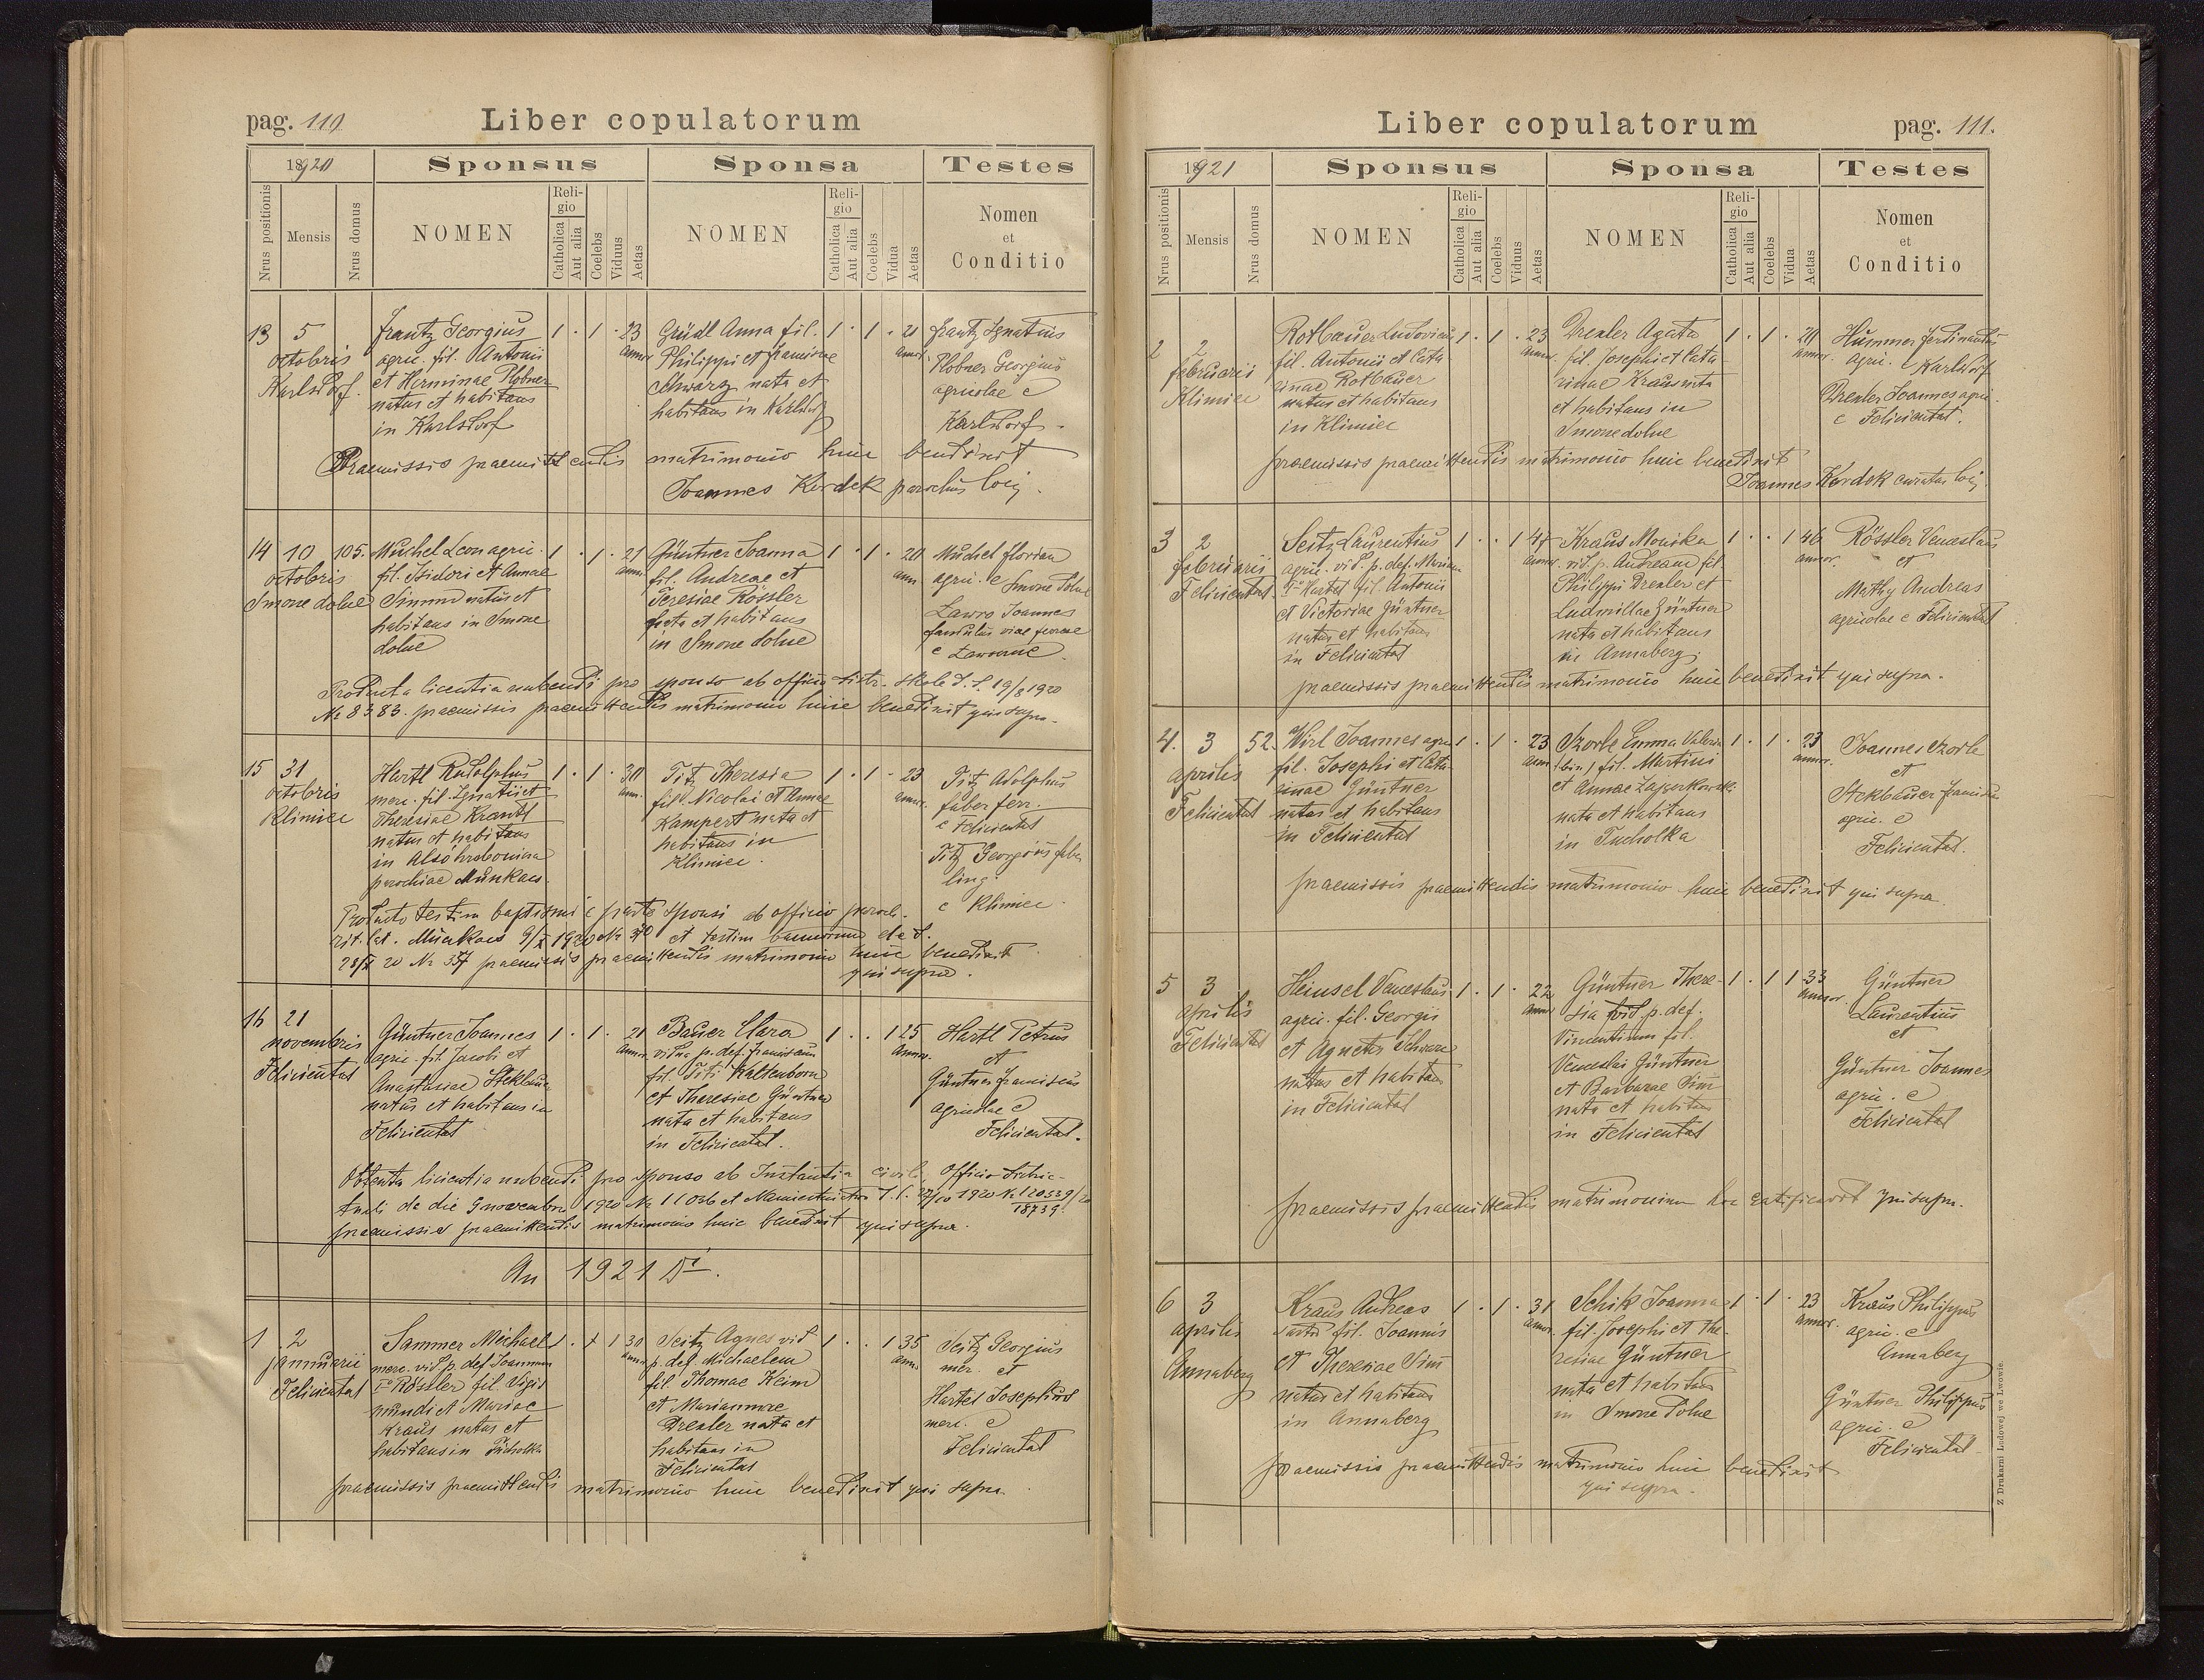 pag. 110
Liber copulatorum
1920
Sponsus
Sponsa
Testes
Nrus positionis
Mensis
Nrus domus
NOMEN
Religio
Catholica
Aut alia
Coelebs
Viduus
Aetas
NOMEN
Religio
Catholica
Aut alia
Coelebs
Vidua
Aetas
Nomen
et
Conditio
13 5
octobris
Karlsdorf.
Frantz Georgius
agric. fil. Antonii
et Herminae Plobner
natus et habitans
in Karlsdorf
1 . 1 . 23
annor.
Gründl Anna fil.
Philippi et Franciscae
Schwarz nata et
habitans in Karlsdorf
1 . 1 . 21
annor.
Frantz Ignatius
Plobner Georgius
agricolae e
Karlsdorf.
Praemissis praemittendis matrimonio huic benedixit
Joannes Kordek parochus loci.
14 10 105.
octobris
Smorze dolne
Muchel Leon agric.
fil. Isidori et Annae
Simm natus et
habitans in Smorze
dolne
1 . 1 . 21
annor.
Güntner Joanna
fil. Andreae et
Teresiae Rössler
nata et habitans
in Smorze dolne
1 . 1 . 20
ann.
Muchel Florian
agric. e Smorze dolne
Joannes
famulus viae ferreae
e Lawoczne.
Producta licentia nubendi pro sponso ab officio distr. Skole d. d. 19/8 1920
№ 8383. praemissis praemittendis matrimonio huic benedixit qui supra.
15 31
octobris
Klimiec
Hartl Rudolphus
merc. fil. Ignatii et
Theresiae Krantl
natus et habitans
in Alsóhrabonica
parochiae Munkacs.
1 . 1 . 30
ann.
Titz Theresia
fil. Nicolai et Annae
Kampert nata et
habitans in
Klimiec.
1 . 1 . 23
annor.
Titz Adolphus
faber ferr.
e Felicienthal
Titz Georgius faber
ling.
e Klimiec.
Producto testim. baptismi e parte sponsi ab officio paroch.
rit. lat. Munkacs 9/X 1920 № 370 et testim. bannorum de d.
28/X 20 № 357 praemissis praemittendis matrimonio huic benedixit
qui supra.
16 21
novembris
Felicienthal
Güntner Joannes
agric. fil. Jacobi et
Anastasiae Stekbauer
natus et habitans in
Felicienthal
1 . 1 . 21
annor.
Bauer Clara
vidua p. def. Franciscum
fil. Titi Kaltenborn
et Theresiae Güntner
nata et habitans
in Felicienthal.
1 . . 1 25
annor.
Hartl Petrus
et
Güntner Franciscus
agricolae e
Felicienthal.
Obtenta licentia nubendi pro sponso ab Instantia civili, Officio distric-
tuali de die 9 novembr. 1920 № 11036 et
praemissis praemittendis matrimonio huic benedixit qui supra.
An 1921 Di.
1 2
januarii
Felicienthal
Sammer Michael
merc. vid. p. def. Joannam
1º Rössler fil. Sigis
mundi et Mariae
Kraus natus et
habitans in Tucholka
1 . + 1 30
annor.
Seitz Agnes vid
p. def. Michaelem
fil. Thomae Keim
et Mariannae
Drexler nata et
habitans in
Felicienthal
1 . . 1 35
ann.
Seitz Georgius
mer. et
Hartel Josephus
merc. e
Felicienthal
praemissis praemittendis matrimonio huic benedixit qui supra.
Liber copulatorum
pag. 111.
1921
Sponsus
Sponsa
Testes
Nrus positionis
Mensis
Nrus domus
NOMEN
Religio
Catholica
Aut alia
Coelebs
Viduus
Aetas
NOMEN
Religio
Catholica
Aut alia
Coelebs
Vidua
Aetas
Nomen
et
Conditio
2 2
februarii
Klimiec
Rotbauer Ludovicus
fil. Antonii et Cata
rinae Rotbauer
natus et habitans
in Klimiec
1 . 1 . 23
annor.
Drexler Agata
fil. Josephi et Cata-
rinae Kraus nata
et habitans in
Smorze dolne
1 . 1 . 20
annor.
Hummer Ferdinandus
agric. e Karlsdorf
Drexler Joannes agric.
e Felicienthal.
praemissis praemittendis matrimonio huic benedixit
Joannes Kordek curatus loci.
3 2
februarii
Felicienthal.
Seitz Laurentius
agric. vid. p. def. Mariam
1º Hartel fil. Antonii
et Victoriae Güntner
natus et habitans
in Felicienthal
1 . . 1 47
annor.
Kraus Monika
vid. p. Andream fil.
Philippi Drexler et
Ludmillae Güntner
nata et habitans
in Annaberg.
1 . . 1 46
annor.
Rössler Venceslaus
et
Mathy Andreas
agricolae e Felicienthal
praemissis praemittendis matrimonio huic benedixit qui supra.
4. 3 52.
aprilis
Felicienthal
Wirl Joannes agric
fil. Josephi et Cata-
rinae Güntner
natus et habitans
in Felicienthal
1 . 1 . 23
annor.
Emma Valeria
(bin.) fil. Martini
et Annae Zajączkowski
nata et habitans
in Tucholka
1 . 1 . 23
annor.
Joannes
et
Stekbauer Franciscus
agric. e
Felicienthal.
praemissis praemittendis matrimonio huic benedixit qui supra.
5 3
aprilis
Felicienthal
Heinsel Venceslaus
agric. fil. Georgii
et Agnetis Schwarz
natus et habitans
in Felicienthal
1 . 1 . 22
annor.
Güntner There-
sia vid. p. def.
Vincentium fil.
Venceslai Güntner
et Barbarae Sim
nata et habitans
in Felicienthal
1 . 1 1 33
annor.
Güntner
Laurentius
et
Güntner Joannes
agric. e
Felicienthal
praemissis praemittendis matrimonium hoc ratificavit qui supra.
6 3
aprilis
Annaberg
Kraus Andreas
fil. Joannis
et Theresiae Sim
natus et habitans
in Annaberg
1 . 1 . 31
annor.
Schik Joanna
fil. Josephi et The-
resiae Güntner
nata et habitans
in Smorze dolne
1 . 1 . 23
annor.
Kraus Philippus
agric. e
Annaberg
Güntner Philippus
agric. e
Felicienthal.
praemissis praemittendis matrimonio huic benedixit
qui supra.
Z Drukarni Ludowej we Lwowie.